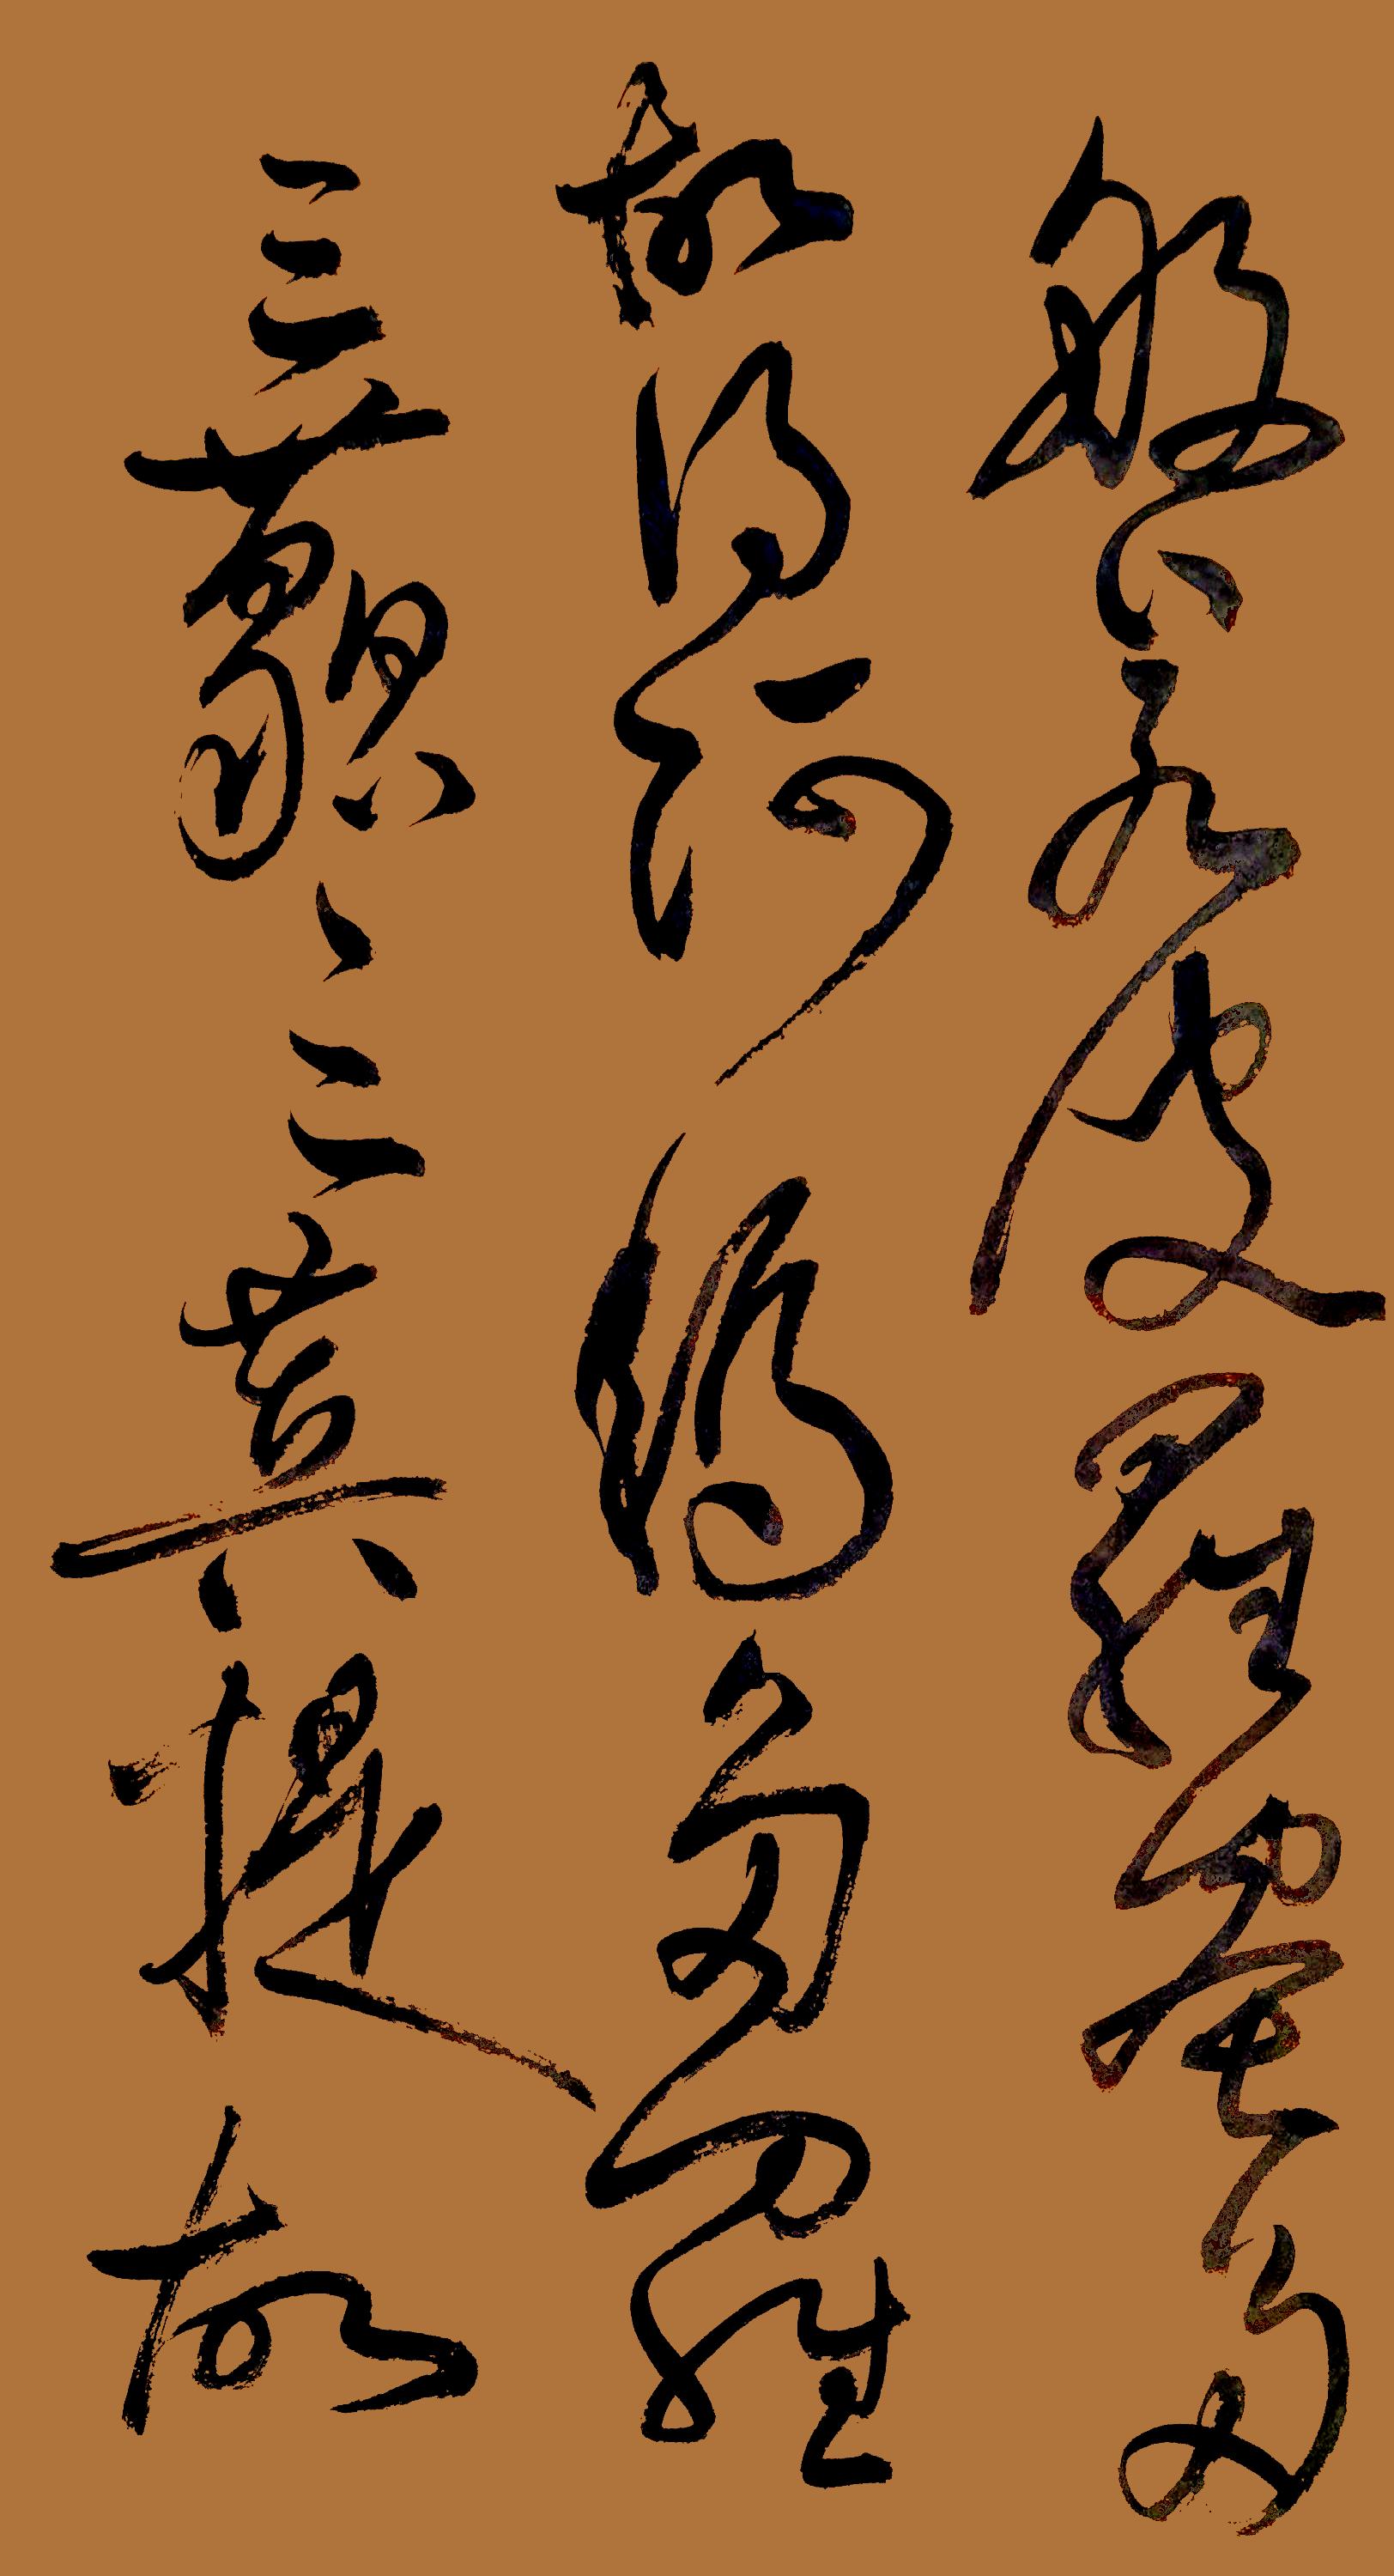 般若波羅蜜多
故得阿耨多羅
三藐三菩提故